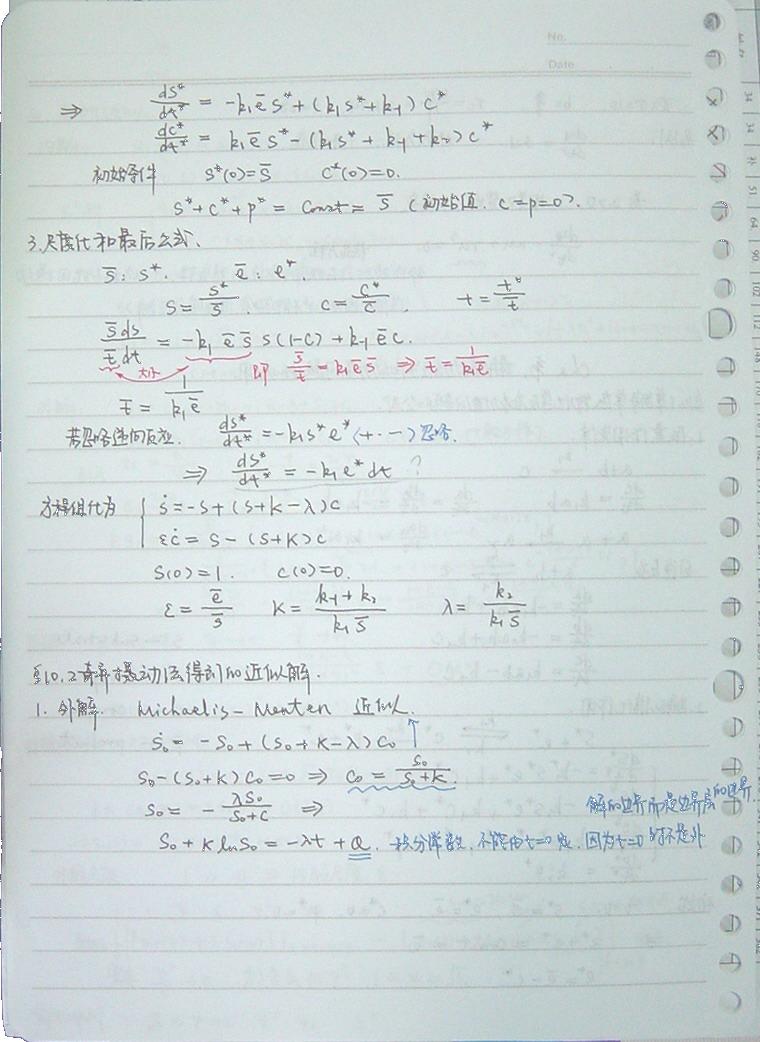 No.
Date
⇒ ds*/dt* = -k₁ē s* + (k₁s* + k₋₁) c*
dc*/dt* = k₁ē s* - (k₁s* + k₋₁ + k₂) c*
初始条件 s*(0)=s̄ c*(0)=0.
s* + c* + p* = const = s̄ (初始值. c=p=0).
3.尺度化和最后公式.
s̄: s*. ē: e*.
s = s*/s̄ . c = c*/c̄ . t = t*/t̄
s̄ds/t̄dt = -k₁ ē s̄ s(1-c) + k₋₁ ē c.
大小 即 s̄/t̄ = k₁ē s̄ ⇒ t̄ = 1/k₁ē
t̄ = 1/k₁ē
若忽略逆向反应. ds*/dt* = -k₁s*e* (+⋯) 忽略.
⇒ ds*/dt* = -k₁e*dt ?
方程组化为 { ṡ = -s + (s+K-λ)c
εċ = s - (s+K)c
s(0)=1. c(0)=0.
ε = ē/s̄ K = k₋₁+k₂/k₁s̄ λ = k₂/k₁s̄
§10.2奇异摄动法得到的近似解.
1. 外解. Michaelis-Menten 近似.
ṡ₀ = -s₀ + (s₀+K-λ)c₀
s₀-(s₀+K)c₀=0 ⇒ c₀ = s₀/s₀+K
ṡ₀ = - λs₀/s₀+c ⇒
s₀ + K ln s₀ = -λt + Q. 积分常数, 不能由t=0定. 因为t=0时不是外
解的边界而是边界层的边界.